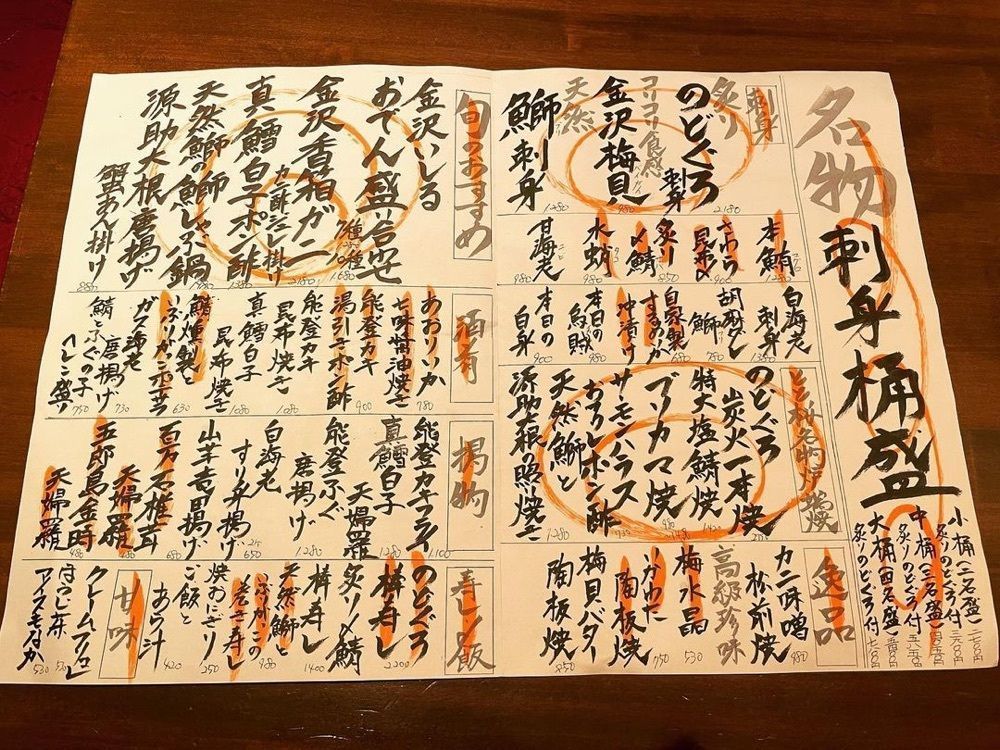 名物
刺身桶盛
小桶(二名盛)
炙りのどぐろ付
中桶(三名盛)
炙りのどぐろ付
大桶(四名盛)
炙りのどぐろ付
刺身
炙り
のどぐろ
刺身
2180
コリコリ食感
金沢梅貝
980
天然
鰤刺身
1280
本鮪
さわら
昆布〆
900
炙り
〆鯖
850
水蛸
甘海老
980
白海老
刺身
1380
胡麻ダレ
鰤
780
自家製
するめいか
沖漬け
680
本日の
貝類
980
本日の
白身
900
名物炉端焼
のどぐろ
炭火一本焼
特大塩鯖焼
1420
ブリカマ焼
980
サーモンハラス
おろしポン酢
天然鰤と
源助大根の照り焼き
1280
逸品
カニ味噌
松前焼
980
高級珍味
梅水晶
530
いかわた
陶板焼
750
梅貝バター
陶板焼
850
旬のおすすめ
金沢いしる
おでん盛り合せ
金沢香箱ガニ
カニ酢ジュレ掛け
真鱈白子ポン酢
天然鰤の鰤しゃぶ鍋
源助大根唐揚げ
蟹あん掛け
酒肴
あおりいか
七味醤油焼き
780
能登カキ
湯引きポン酢
900
能登カキ
昆布焼き
1080
真鱈白子
昆布焼き
1080
鯖燻製と
いぶりがっこポテサラ
630
ガス海老
唐揚げ
730
鯖とふぐの子
へしこ盛り
750
揚物
能登カキフライ
1100
真鱈白子
天婦羅
1280
能登ふぐ
唐揚げ
1280
白海老
すり身揚げ
650
山羊竜田揚げ
百万石椎茸
天婦羅
680
五郎島金時
天婦羅
480
寿し・ご飯
のどぐろ
棒寿し
2200
炙り〆鯖
棒寿し
1400
天然鰤と
いぶりがっこの
巻き寿し
980
焼おにぎり
250
ご飯と
あら汁
420
甘味
クレームブリュレ
530
ほうじ茶
アイスもなか
530